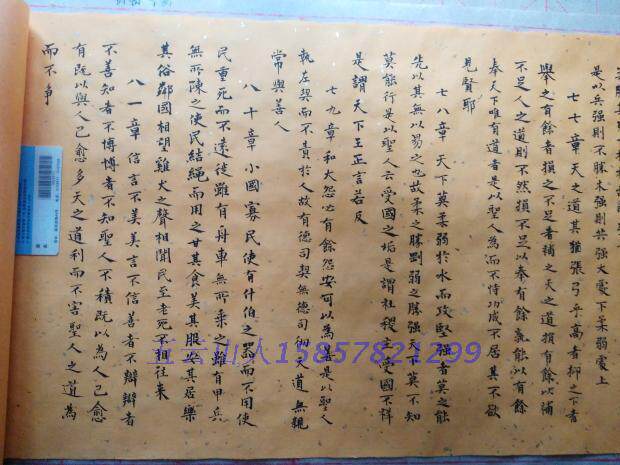 是以兵强則不勝木强則共强大處下柔弱處上
七七章 天之道其猶張弓乎高者抑之下者
舉之有餘者損之不足者補之天之道損有餘以補
不足人之道則不然損不足以奉有餘孰能以有餘
奉天下唯有道者是以聖人為而不恃功成不居其不欲
見賢耶
七八章 天下莫柔弱於水而攻堅强者莫之能
先以其無以易之也故柔之勝剛弱之勝强天下莫不知
莫能行是以聖人云受國之垢是謂社稷主受國不祥
是謂天下王正言若反
七九章 和大怨必有餘怨安可以為善是以聖人
執左契而不責於人故有德司契無德司徹天道無親
常與善人
八十章 小國寡民使有什伯之器而不用使
民重死而不遠徙雖有舟車無所乘之雖有甲兵
無所陳之使民結繩而用之甘其食美其服安其居樂
其俗鄰國相望雞犬之聲相聞民至老死不相往来
八一章 信言不美美言不信善者不辯辯者
不善知者不博博者不知聖人不積既以為人己愈
有既以與人己愈多天之道利而不害聖人之道為
而不争
五云山人15857821299